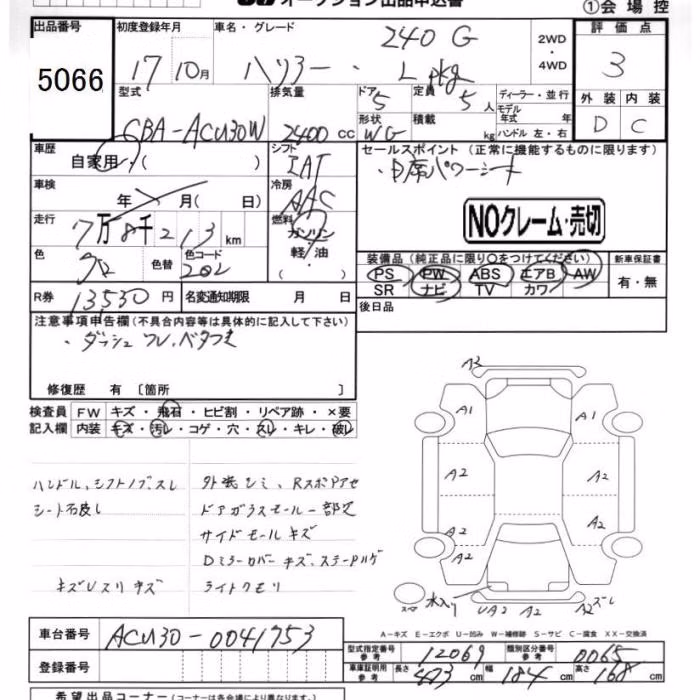 オークション出品申込書
①会場控
出品番号 初度登録年月 車名・グレード 評価点
5066 17 10月 ハリアー・ 240 G L pkg 2WD・4WD 3
型式 排気量 ドア 定員 ディーラー・並行 外装 内装
CBA-ACU30W 2400cc 5 5人 モデル年式 年式 D C
形状 WG 積載 kg ハンドル 左・右
車歴 シフト セールスポイント (正常に機能するものに限ります)
自家用・( ) IAT ・D席パワーシート
車検 年 月( 日) 冷房 AAC
NOクレーム・売切
走行 7万8千213km 燃料 ガソリン
軽油
・( )
色 色替 色コード 202
装備品 (純正品に限り○をつけてください) 新車保証書
PS PW ABS エアB AW 有・無
SR ナビ TV カワ
R券 13530円 名変通知期限 月 日
後日品
注意事項申告欄(不具合内容等は具体的に記入して下さい)
・ダッシュワレ.ベタつき
修復歴 有 〔箇所 〕
検査員 FW キズ・飛石・ヒビ割・リペア跡・×要
記入欄 内装 キズ・汚レ・コゲ・穴・スレ・キレ・破レ
ハンドル、シフトノブスレ
シート破レ
キズUスリキズ
外装
ドアガラスモール一部欠
サイドモールキズ
Dミラーカバーキズ、
ライトクモリ
A3
A1 A1
A2 A2
A2 A2
A2 A2
スペア 水入り UA2 A2 A2 ズレ
A-キズ E-エクボ U-凹み W-補修跡 S-サビ C-腐食 XX-交換済
車台番号 ACU30-0041753
登録番号
型式指定番号 参考 12069 類別区分番号 参考 0065
車庫証明用 参考 長さ 473cm 幅 184cm 高さ 168cm
希望出品コーナー(コーナーは各会場により